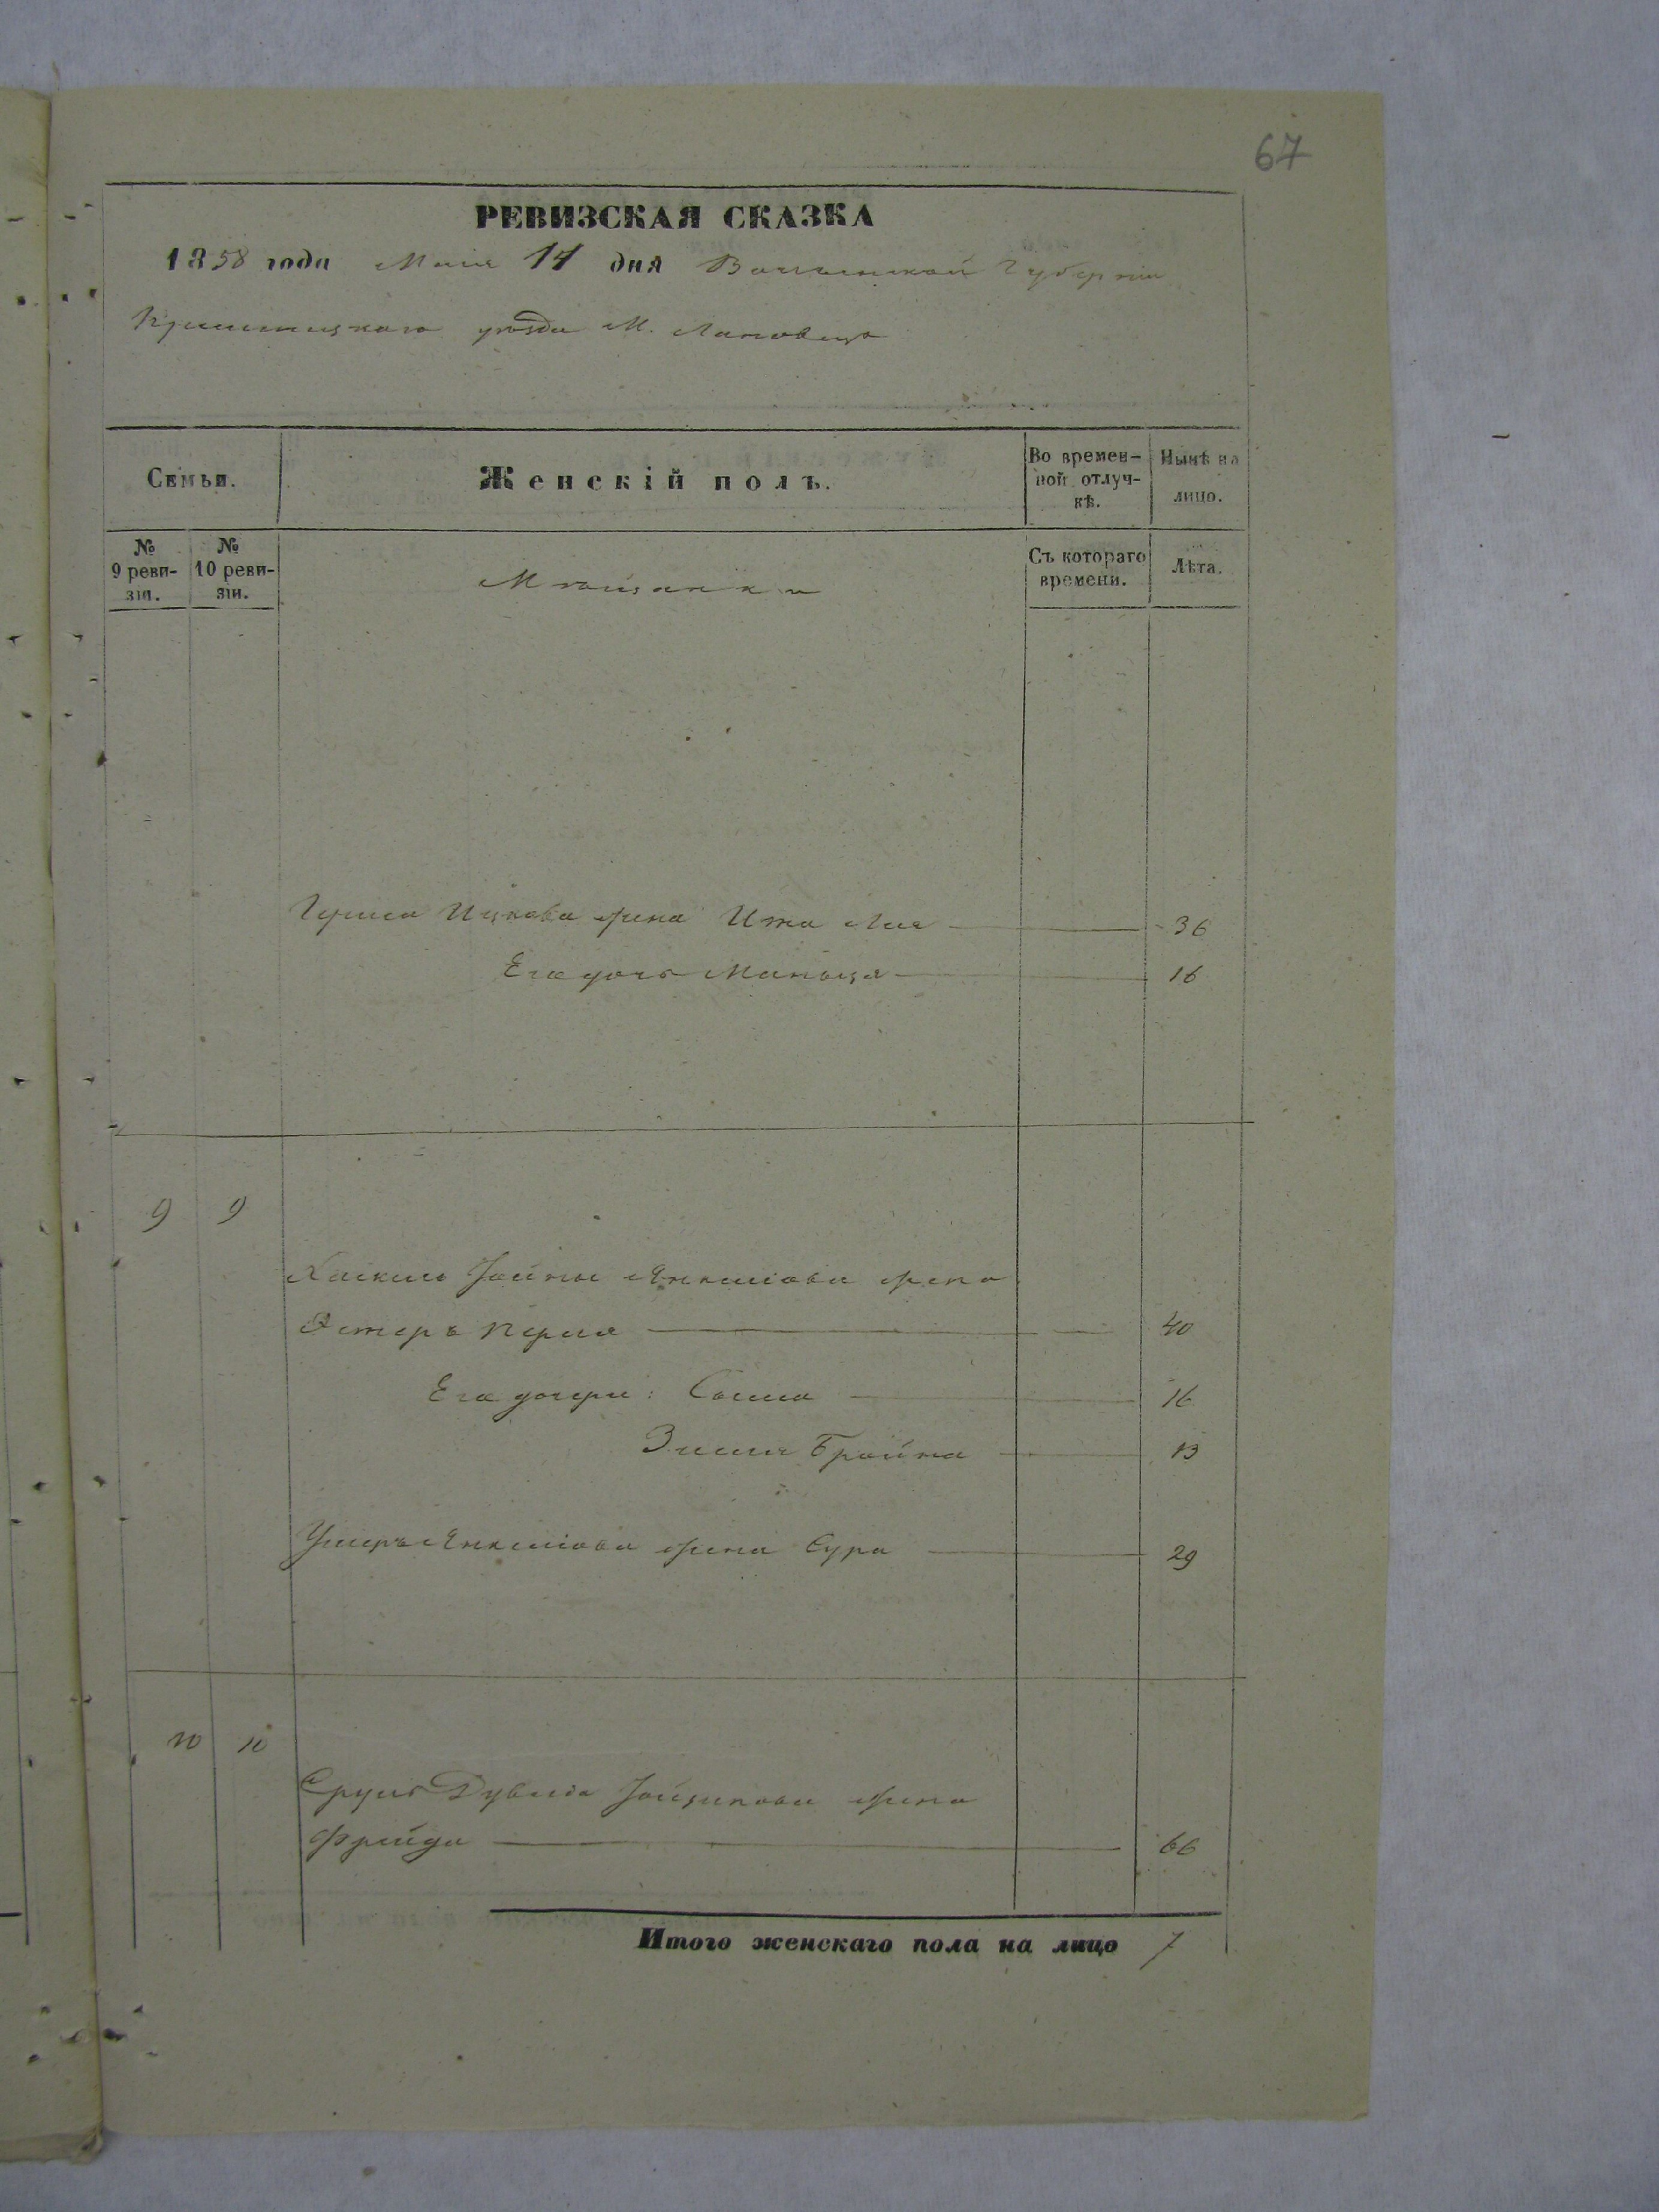 67
РЕВИЗСКАЯ СКАЗКА
1858 года Маія 14 дня Волынской Губерніи
Кременецкаго уѣзда М. Лановецъ
Семьи.
Женскій полъ.
Во времен-
ной отлуч-
кѣ.
Нынѣ на
лицо.
№
9 реви-
зіи.
№
10 реви-
зіи.
Мѣщанки
Съ котораго
времени.
Лѣта.
Ицкова жена Ита Лея 36
Его дочь Маньця 16
9 9
Хаскиль Іойны Янкеліова жена
Эстеръ Перля 40
Его дочери: Сосиа 16
Зисля Бройна 13
Умеръ Янкеліова жена Сура 29
10 10
Сруль Дувида жена
Фрейда 66
Итого женскаго пола на лицо 7